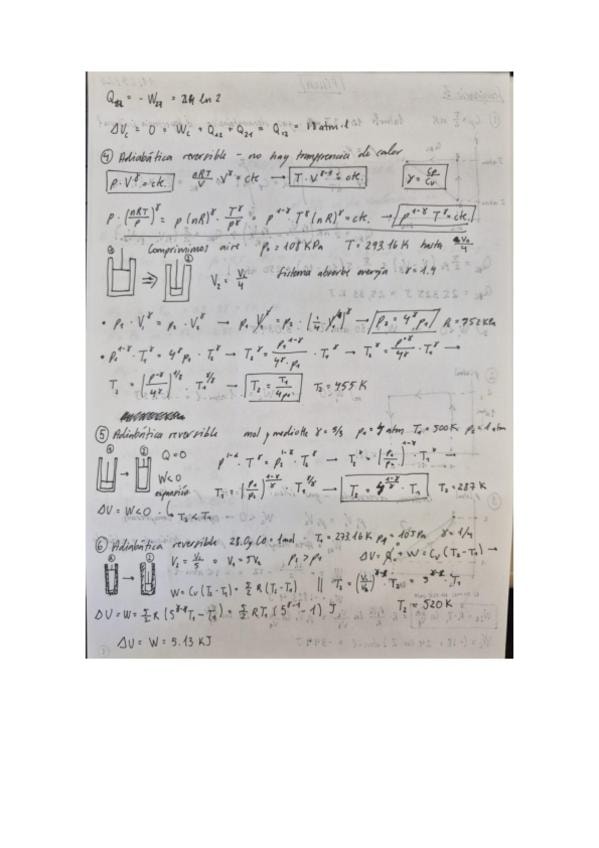 Q₁₂ = - W₂₁ = 24 ln 2
ΔU_c = 0 = W_c + Q₁₂ + Q₂₁ = Q₁₂ = 18 atm·l
④ Adiabática reversible - no hay tranferencia de calor
p·V^γ = cte. nRT/V · V^γ = cte → T·V^γ-1 = cte. γ = Cp/Cv
p·(nRT/p)^γ = p (nR)^γ · T^γ/p^γ = p^1-γ T^γ (nR)^γ = cte. → p^1-γ T^γ = cte.
Comprimimos aire p₁ = 108 KPa T = 293.16 K hasta V₁/4
① ② V₂ = V₁/4 Sistema absorbe energía γ = 1.4
• p₁·V₁^γ = p₂·V₂^γ → p₁ V₁^γ = p₂·(1/4 V₁)^γ → p₂ = 4^γ·p₁ P₂ = 752 KPa
• p₁^1-γ·T₁^γ = 4^γ p₁·T₂^γ → T₂^γ = p₁^1-γ/4^γ·p₁ · T₁^γ → T₂^γ = p^-γ/4^γ · T₁^γ →
T₂ = (p^-γ/4^γ)^1/γ · T₁^γ/γ → T₂ = T₁/4p₁ T₂ = 455 K
⑤ Adiabática reversible mol γ mediotte γ = 5/3 p₁ = 4 atm T₁ = 500K p₂ = 1 atm
① ② Q = 0 p^1-γ·T^γ = p₂^1-γ·T₂^γ → T₂^γ = (p₁/p₂)^1-γ →
W<0
expansión T₂ = (p₁/p₂)^1-γ/γ · T₁^γ/γ → T₂ = 4^1-γ/γ · T₁ T₂ = 287 K
ΔU = W<0 → T₂ < T₁
⑥ Adiabática reversible 28.0g CO = 1mol · T₁ = 273.16K p₁ = 10⁵Pa γ = 1/4
① ② V₂ = V₁/5 = V₁ = 5V₂ p₂ > p₁ ΔU = Q + W = Cv (T₂ - T₁) →
W = Cv (T₂ - T₁) = 5/2 R (T₂ - T₁) || T₂ = (V₁/V₂)^γ-1 · T₁ = 5^γ-1 · T₁
ΔU = W = 5/2 R (5^γ-1 T₁ - T₁) = 5/2 R T₁ (5^γ-1 - 1) J T₂ = 520 K
ΔU = W = 5.13 KJ